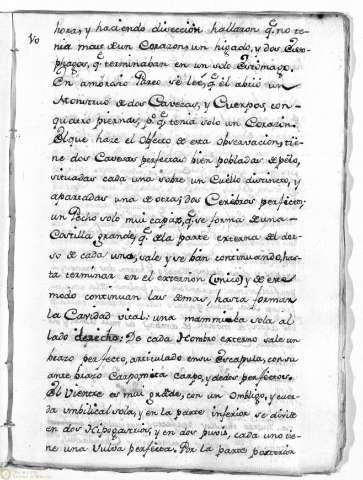 Vo
horas, y haciendo diseccion hallaron q.e no te-
nia mas de un Corazon, un higado, y dos Eso-
phagos, q.e terminaban en un solo Estomago.
En Ambrosio Pareo se leé, q.e el abrió un
Monstruo de dos Cavezas, y Cuerpos, con
quatro piernas, p.o q.e tenia solo un Corazon.
El que hace el Objecto de esta observacion, tie-
ne dos Cavezas perfectas bien pobladas de pélo,
situadas cada una sobre un Cuello distincto, y
apartadas una de otra; dos Cerebros perfectos;
un Pecho solo mui capaz, q.e se forma de una
Costilla grande, q.e de la parte externa del dor-
so de cada uno, sale y se bán continuando, has-
ta terminar en el externon (unico) y de este
modo continuan las demas, hasta formar
la Cavidad vital: una mammila sola al
lado derecho: De cada Hombro externo sale un
brazo perfecto, articulado en su Escapula, con su
ante brazo Carpo, meta carpo, y dedos perfectos.
El Vientre es mui grande, con un Ombligo, y cuer-
da umbilical sola, y en la parte inferior se divide
en dos Hipogastrios, y en dos pubis, cada uno tie-
ne una Vulva perfecta. Por la parte posterior